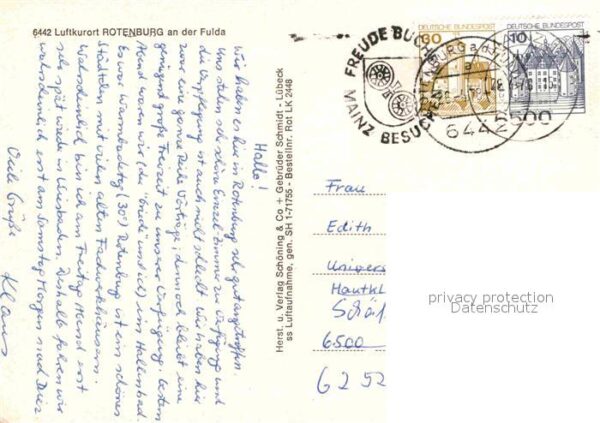 6442 Luftkurort ROTENBURG an der Fulda
Hallo!
Wir haben es hier in Rotenburg sehr gut angetroffen.
Uns stehen sehr schöne Einzelzimmer zur Verfügung und
die Verpflegung ist auch nicht schlecht. Wir haben hier
zwar eine ganze Reihe Vorträge, dennoch bleibt eine
genügend große Freizeit zu unserer Verfügung. Gestern
Abend waren wir (die "Brüder" und ich) im Hallenbad.
Es war Warmbadetag (30°). Rotenburg ist ein schönes
Städtchen mit vielen alten Fachwerkhäusern.
Wahrscheinlich bin ich am Freitag Abend erst
sehr spät wieder in Wiesbaden. Deshalb fahren wir
wahrscheinlich erst am Samstag Morgen nach Diez
Viele Grüße
Klaus
Herst. u. Verlag Schöning & Co + Gebrüder Schmidt - Lübeck
ss Luftaufnahme, gen. SH 1-71755 - Bestellnr. Rot LK 2448
DEUTSCHE BUNDESPOST
DEUTSCHE BUNDESPOST
30
10
FREUDE
MAINZ BESUCHEN
6442
Frau
Edith
Univers
Hautkl
6500
6252
privacy protection
Datenschutz